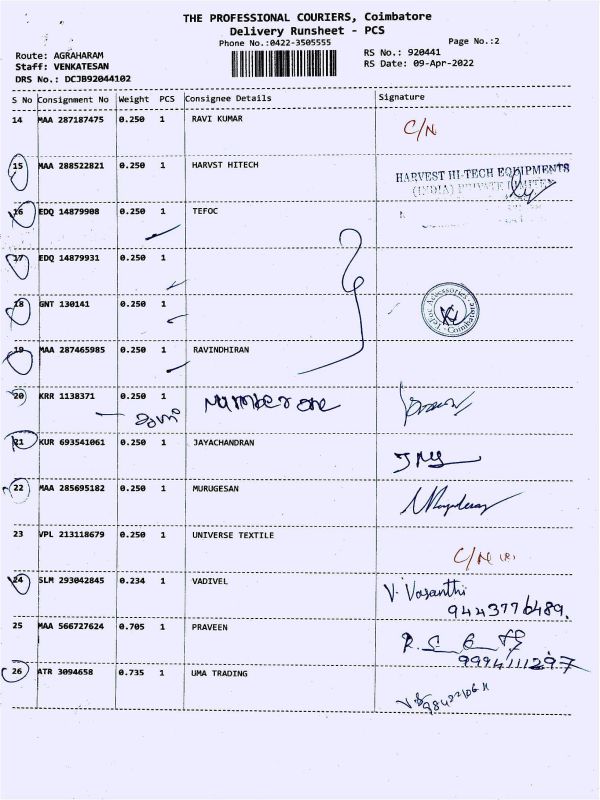 THE PROFESSIONAL COURIERS, Coimbatore
Delivery Runsheet - PCS
Phone No.:0422-3505555
Page No.:2
Route: AGRAHARAM
RS No.: 920441
Staff: VENKATESAN
RS Date: 09-Apr-2022
DRS No.: DCJB92044102
S No Consignment No Weight PCS Consignee Details Signature
14 MAA 287187475 0.250 1 RAVI KUMAR
C/N
15 MAA 288522821 0.250 1 HARVST HITECH
HARVEST HI-TECH EQUIPMENTS
(INDIA) PRIVATE LIMITED
16 EDQ 14879908 0.250 1 TEFOC
17 EDQ 14879931 0.250 1
18 GNT 130141 0.250 1
Coimbatore
19 MAA 287465985 0.250 1 RAVINDHIRAN
20 KRR 1138371 0.250 1 Number one
21 KUR 693541061 0.250 1 JAYACHANDRAN
22 MAA 285695182 0.250 1 MURUGESAN
23 VPL 213118679 0.250 1 UNIVERSE TEXTILE
C/N
24 SLM 293042845 0.234 1 VADIVEL
V. Vasanthi
9443776489.
25 MAA 566727624 0.705 1 PRAVEEN
9994111297
26 ATR 3094658 0.735 1 UMA TRADING